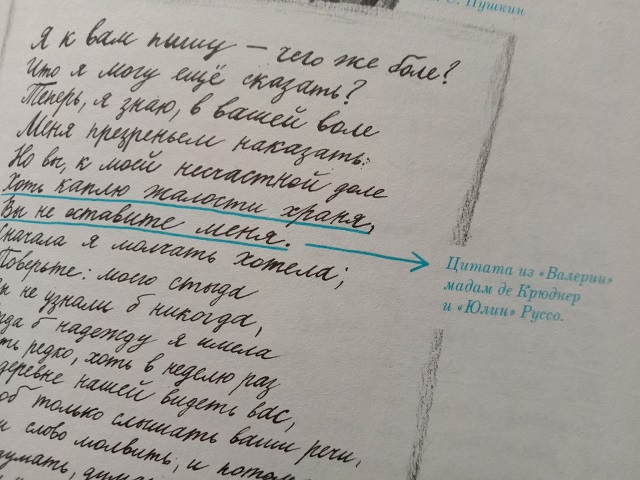 С. Пушкин
Я к вам пишу – чего же боле?
Что я могу ещё сказать?
Теперь, я знаю, в вашей воле
Меня презреньем наказать.
Но вы, к моей несчастной доле
Хоть каплю жалости храня,
Вы не оставите меня.
Сначала я молчать хотела;
Поверьте: моего стыда
ы не узнали б никогда,
гда б надежду я имела
ть редко, хоть в неделю раз
деревне нашей видеть вас,
об только слышать ваши речи,
и слово молвить, и потом
думать, дума
Цитата из «Валерии»
мадам де Крюднер
и «Юлии» Руссо.